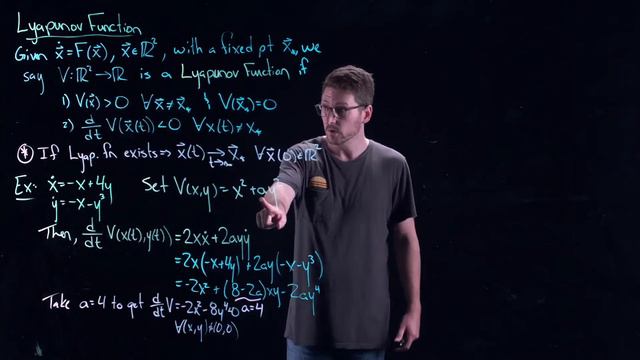 Lyapunov Function
Given ẋ⃗ = F(x⃗), x⃗ ∈ ℝ², with a fixed pt x⃗*, we
say V: ℝ² → ℝ is a Lyapunov Function if
1) V(x⃗) > 0 ∀x⃗ ≠ x⃗* & V(x⃗*) = 0
2) d/dt V(x⃗(t)) < 0 ∀x(t) ≠ x*
(*) If Lyap. fn exists ⇒ x⃗(t) → x⃗* ∀x⃗(0) ∈ ℝ²
t→∞
Ex: ẋ = -x + 4y Set V(x,y) = x² + ay
ẏ = -x - y³
Then, d/dt V(x(t), y(t)) = 2xẋ + 2ayẏ
= 2x(-x+4y) + 2ay(-x-y³)
= -2x² + (8-2a)xy - 2ay⁴
a=4
Take a=4 to get d/dt V = -2x² - 8y⁴ < 0
∀(x,y) ≠ (0,0)